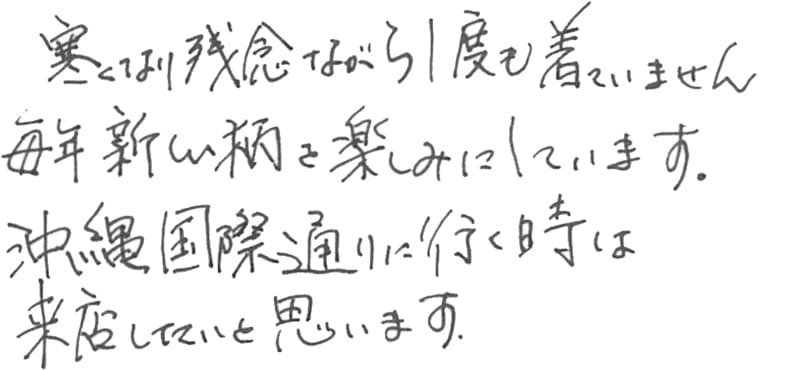 寒くなり残念ながら1度も着ていません
毎年新しい柄を楽しみにしています。
沖縄国際通りに行く時は
来店したいと思います。